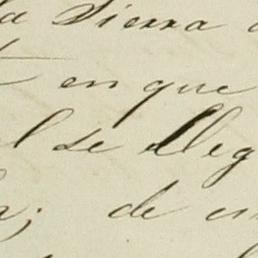 la Sierra
en que
l se lleg
; de en